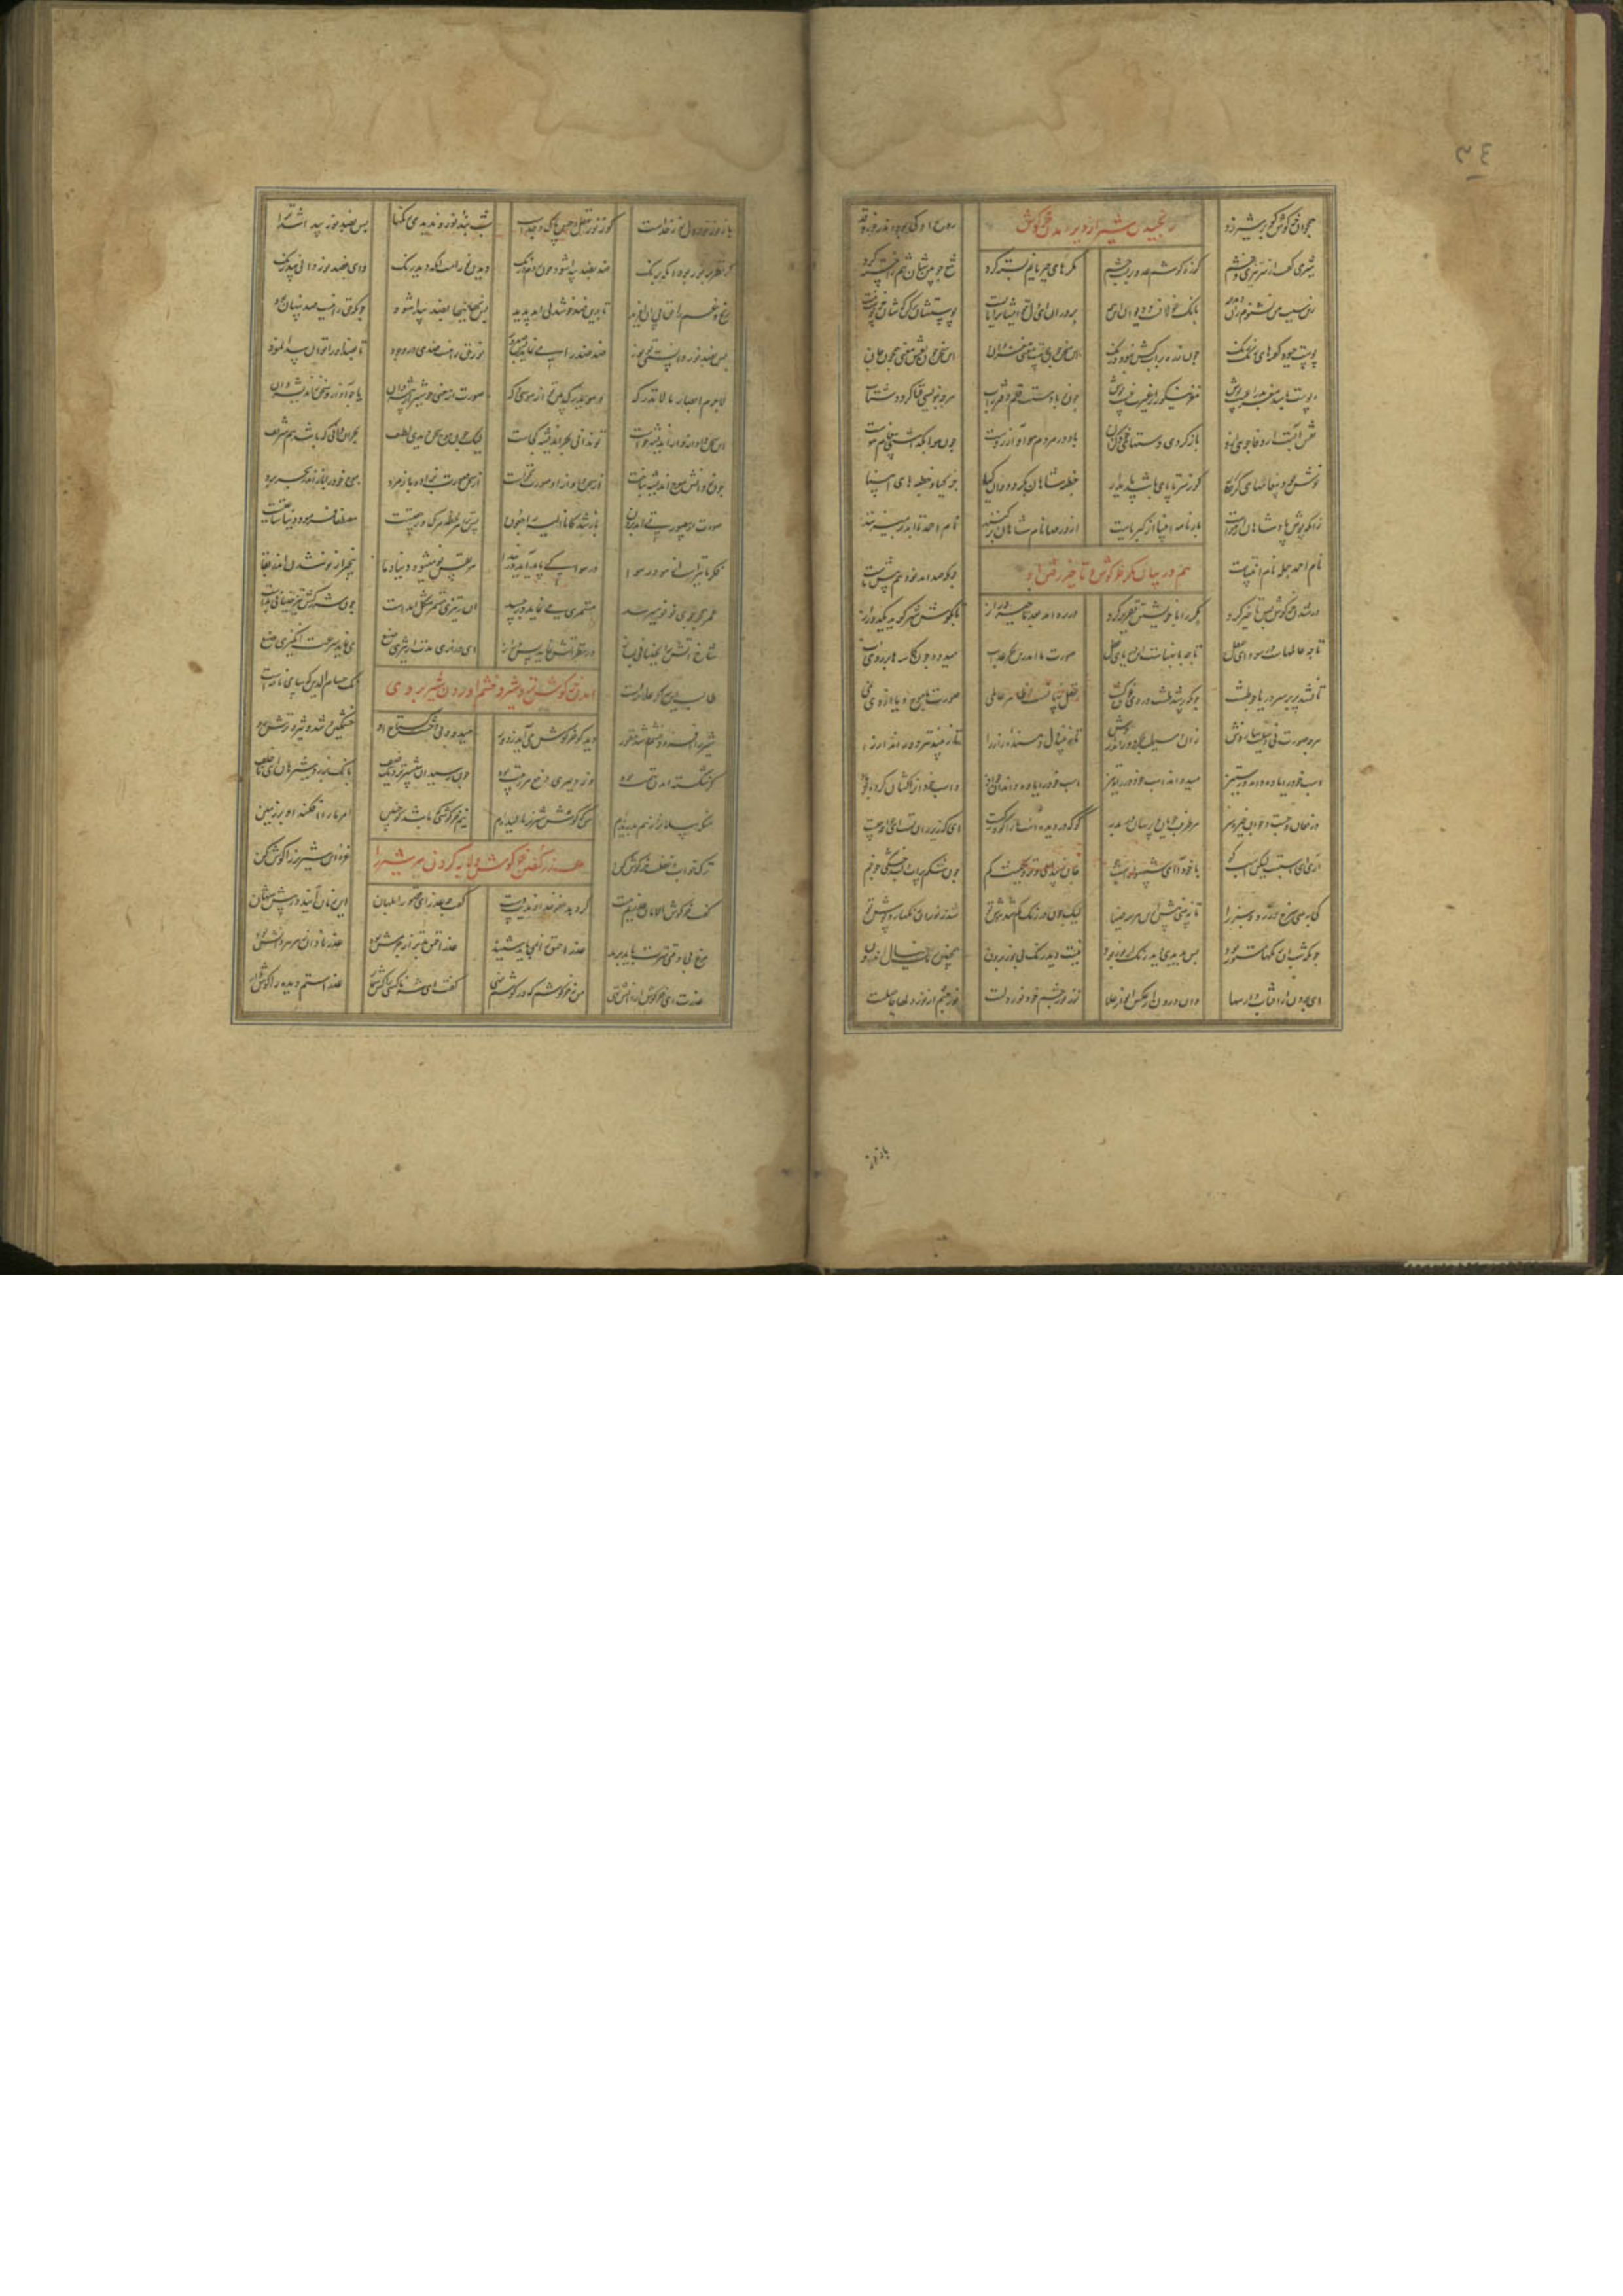 همچو آن خرگوش کو بر شیر زد رنجیدن شیر از دیر آمدن خرگوش روح او کی بود اندر خورد قد
شیر می گفت از سر تیزی و خشم کز ره گوشم عدو بر بست چشم مکرهای جبریانم بسته کرد تیغ چوبین شان تنم را خسته کرد
زین سپس من نشنوم آن دمدمه بانک غولانست و دیوان آن همه بردران ای دل تو ایشان را مه ایست پوستشان برکن کشان جز پوست نیست
پوست چبود گفتهای رنگ رنگ چون زره بر آب کش نبود درنگ این سخن چون پوست معنی مغز دان این سخن چون نقش معنی همچو جان
پوست باشد مغز بد را عیب پوش مغز نیکو را ز غیرت غیب پوش چون ز بادست قلم دفتر ز آب هرچه بنویسی فنا گردد شتاب
نقش آبست ار وفا جویی از آن باز گردی دستهای خود گزان باد در مردم هوا و آرزوست چون هوا بگذاشتی پیغام هوست
خوش بود پیغامهای کردگار کو ز سر تا پای باشد پایدار خطبه شاهان بگردد وان کیا جز کیا و خطبهای انبیا
زانکه بوش پادشاهان از هواست بارنامه انبیا از کبریاست از درمها نام شاهان برکنند نام احمد تا ابد بر میزنند
نام احمد جمله نام انبیاست هم در بیان مکر خرگوش و تاخیر رفتن او چونکه صد آمد نود هم پیش ماست
در شدن خرگوش بس تاخیر کرد مکر را با خویشتن تقریر کرد در ره آمد بعد تاخیر دراز تا بگوش شیر گوید یک دو راز
تا چه عالمهاست در سودای عقل تا چه با پهناست این دریای عقل صورت ما اندرین بحر عذاب میدود چون کاسها بر روی آب
تا نشد پر بر سر دریا چو طشت چونکه پر شد طشت در وی غرق گشت عقل پنهانست و ظاهر عالمی صورت ما موج و یا از وی نمی
هرچه صورت می وسیلت سازدش زان وسیلت بحر دور اندازدش تا نبیند دل دهنده راز را تا نبیند تیر دور انداز را
اسب خود را یاوه داند وز ستیز میدواند اسب خود در راه تیز اسب خود را یاوه داند آن جواد و اسب خود او را کشان کرده چو باد
در فغان و جست و جو آن خیره سر هر طرف پرسان و جویان در بدر ای که زیر ران تست ای خواجه چیست
آری این اسبست لیکن اسب کو با خود آی ای شهسوار اسب جو جان ز پیدایی و نزدیکیست گم چون شکم پر آب و لب خشکی چو خم
کی ببینی سرخ و سبز را تا نبینی پیش ازین هر سه ضیا لیک چون در رنگ گم شد هوش تو شد ز نور آن رنگها روپوش تو
چونکه شب آن رنگها مستور بود پس بدیدی دید رنگ از نور بود نیست دید رنگ بی نور برون همچنین رنگ خیال اندرون
این برون از آفتاب و از سها وان درون از عکس انوار علا نور نور چشم خود نور دلست نور چشم از نور دلها حاصلست
باز نور
باز نور نور دل نور خداست کو ز نور عقل و حس پاک و جداست شب نبد نور و ندیدی رنگها پس بضد نور پیدا شد ترا
که نظر بر نور بود آنگه برنگ ضد بضد پیدا شود چون روم و زنگ دیدن نورست آنگه دید رنگ وین بضد نور دانی بی درنگ
رنج و غم را حق پی آن آفرید تا بدین ضد خوش دلی آید پدید پس نهانیها بضد پیدا شود چونکه حق را نیست ضد پنهان بود
پس بضد نور دانستی تو نور ضد ضد را می نماید در صدور نور حق را نیست ضدی در وجود تا بضد او را توان پیدا نمود
لاجرم ابصار ما لا تدرکه و هو یدرک بین تو از موسی و که صورت از معنی چو شیر از بیشه دان یا چو آواز و سخن ز اندیشه دان
این سخن و آواز از اندیشه خاست تو ندانی بحر اندیشه کجاست لیک چون موج سخن دیدی لطیف بحر آن دانی که باشد هم شریف
چون ز دانش موج اندیشه بتاخت از سخن و آواز او صورت بساخت از سخن صورت بزاد و باز مرد موج خود را باز اندر بحر برد
صورت از بی صورتی آمد برون باز شد کانا الیه راجعون پس ترا هر لحظه مرگ و رجعتیست مصطفی فرمود دنیا ساعتیست
فکر ما تیریست از هو در هوا در هوا کی پاید آید تا خدا هر نفس نو میشود دنیا و ما بیخبر از نو شدن اندر بقا
عمر همچون جوی نو نو میرسد مستمری می نماید در جسد آن ز تیزی مستمر شکل آمدست چون شرر کش تیز جنبانی بدست
شاخ آتش را بجنبانی بساز در نظر آتش نماید بس دراز این درازی مدت از تیزی صنع می نماید سرعت انگیزی صنع
طالب این سر اگر علامه ایست آمدن خرگوش نزد شیر و خشم آوردن شیر بر وی نک حسام الدین که سامی نامه ایست
شیر اندر آتش و در خشم و شور دید کان خرگوش می آید ز دور میدود بی دهشت و گستاخ او خشمگین و تند و تیز و ترش رو
کز شکسته آمدن تهمت بود وز دلیری دفع هر ریبت بود چون رسید او پیشتر نزدیک صف بانگ بر زد شیر هان ای ناخلف
من که پیلان را ز هم بدریده ام من که گوش شیر نر مالیده ام نیم خرگوشی که باشد کو چنین امر ما را افکند او بر زمین
ترک خواب و غفلت خرگوش کن عذر گفتن خرگوش و لابه کردن مر شیر را غره این شیر ای خر گوش کن
گفت خرگوش الامان عذریم هست گر دهد عفو خداوندیت دست گفت چه عذر ای قصور ابلهان این زمان آیند در پیش شهان
مرغ بی وقتی سرت باید برید عذر احمق را نمی باید شنید عذر احمق بتر از جرمش بود عذر نادان زهر هر دانش بود
عذرت ای خرگوش از دانش تهی من نه خرگوشم که در گوشم نهی گفت ای شه ناکسی را کس شمار عذر استم دیده را گوش دار